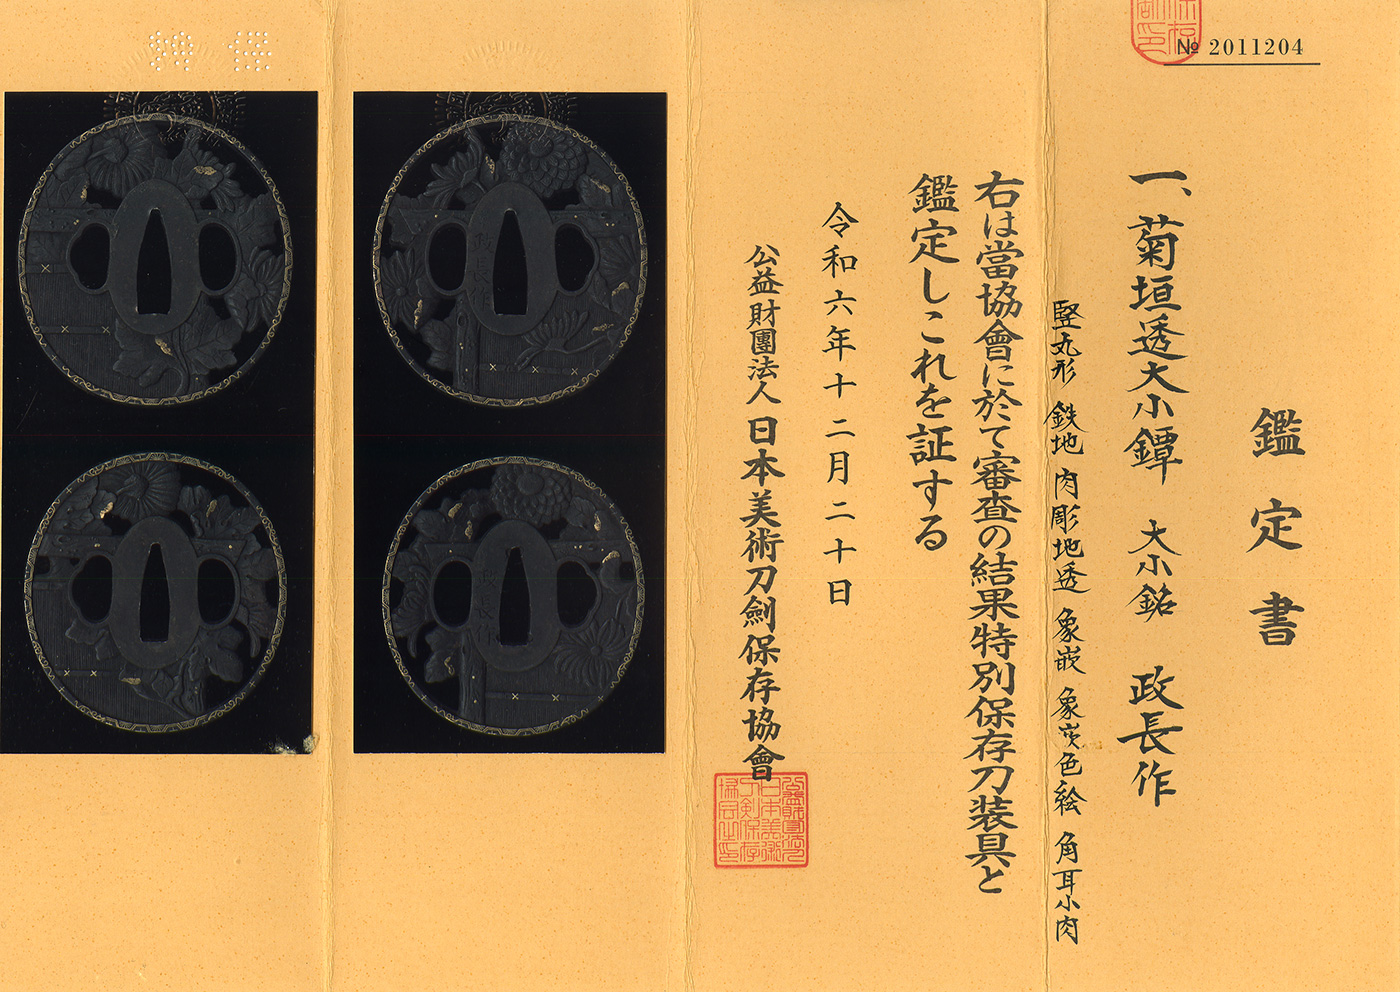 № 2011204
鑑定書
一、菊垣透大小鐔 大小銘 政長作
竪丸形 鉄地 肉彫地透 象嵌 象嵌色絵 角耳小肉
右は當協會に於て審査の結果特別保存刀装具と
鑑定しこれを証する
令和六年十二月二十日
公益財團法人 日本美術刀劍保存協會
政長作
政長作